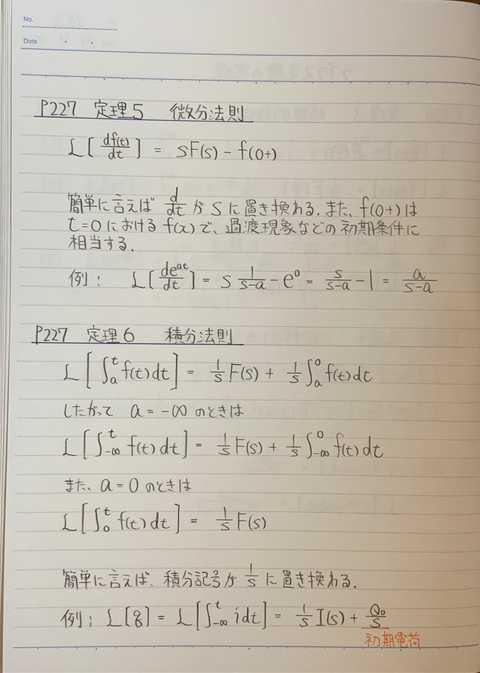 No.
Date
P227 定理5 微分法則
L[df(t)/dt] = sF(s) - f(0+)
簡単に言えば d/dt が s に置き換わる. また, f(0+)は
t=0 における f(x)で, 過渡現象などの初期条件に
相当する.
例: L[de^at/dt] = s 1/(s-a) - e^0 = s/(s-a) - 1 = a/(s-a)
P227 定理6 積分法則
L[∫_a^t f(t)dt] = 1/s F(s) + 1/s ∫_a^0 f(t)dt
したがって a = -∞ のときは
L[∫_-∞^t f(t)dt] = 1/s F(s) + 1/s ∫_-∞^0 f(t)dt
また, a = 0 のときは
L[∫_0^t f(t)dt] = 1/s F(s)
簡単に言えば, 積分記号が 1/s に置き換わる.
例: L[q] = L[∫_-∞^t idt] = 1/s I(s) + Q0/s
初期電荷